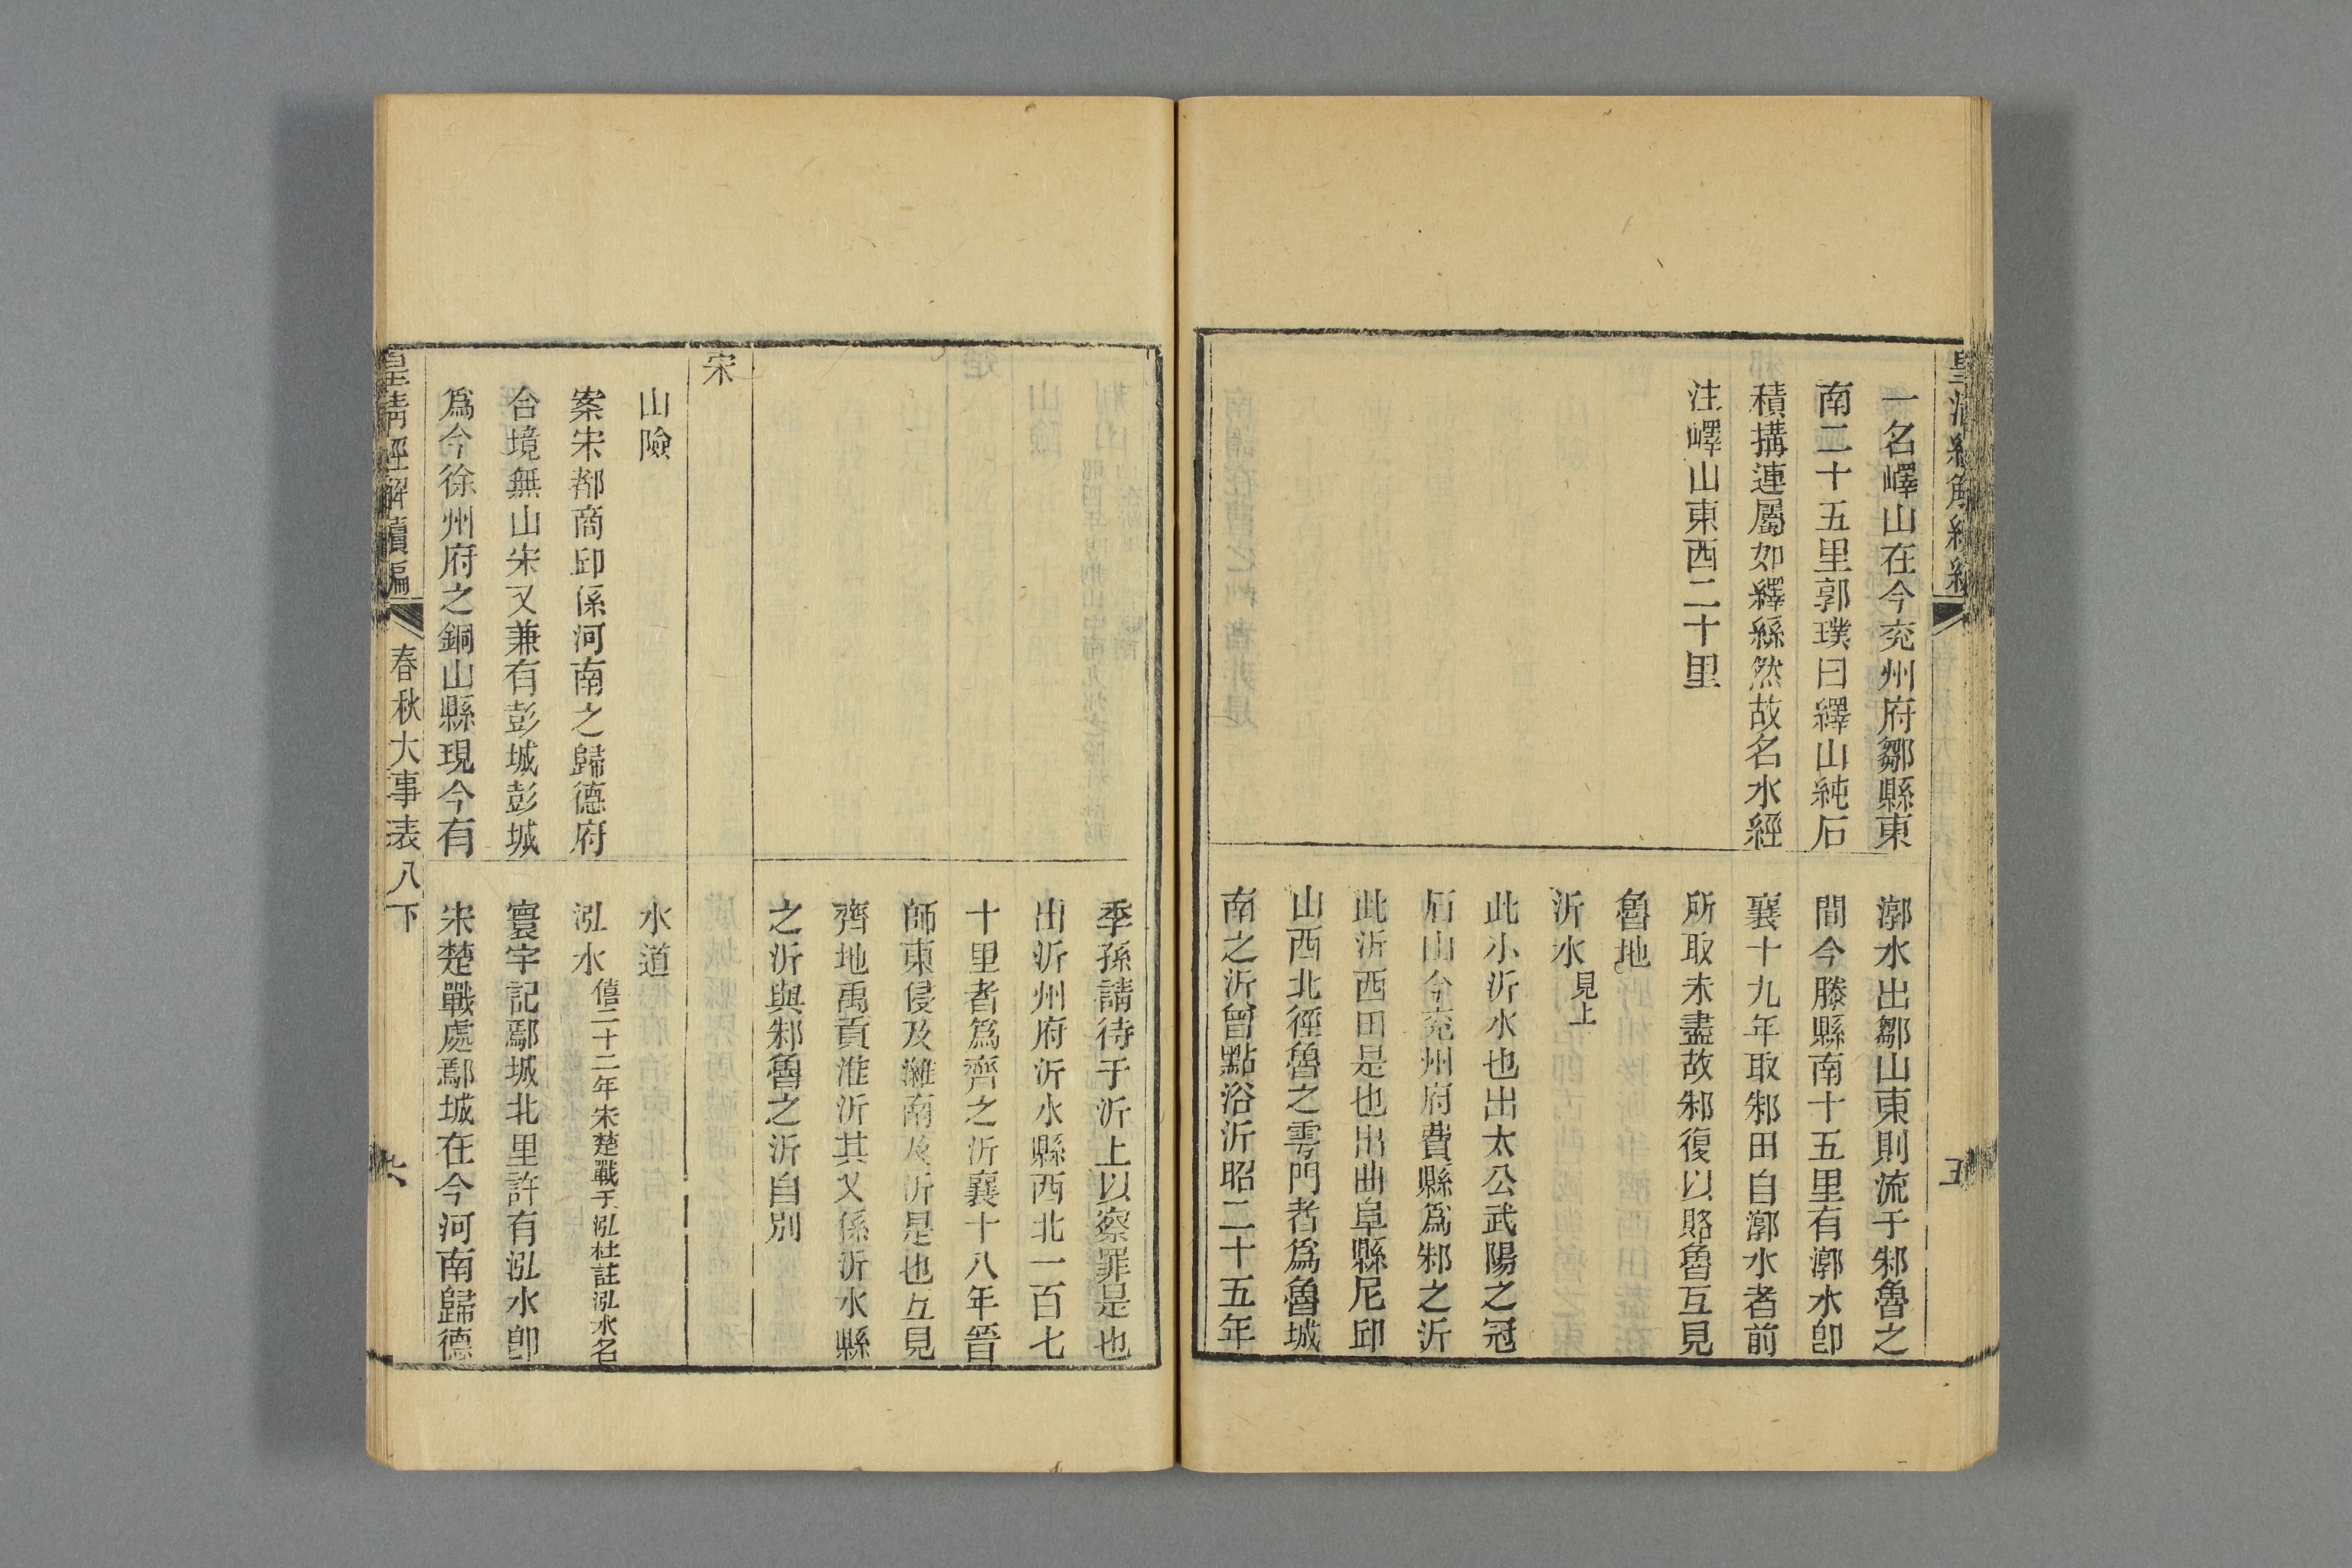 一名嶧山在今兖州府鄒縣東
南二十五里郭璞曰繹山純石
積搆連屬如繹絲然故名水經
注嶧山東西二十里
漷水出鄒山東則流于邾魯之
間今滕縣南十五里有漷水卽
襄十九年取邾田自漷水者前
所取未盡故邾復以賂魯互見
魯地
沂水見上
此小沂水也出太公武陽之冠
石山今兖州府費縣爲邾之沂
此沂西田是也出曲阜縣尼邱
山西北徑魯之雩門者爲魯城
南之沂曾點浴沂昭二十五年
季孫請待于沂上以察罪是也
出沂州府沂水縣西北一百七
十里者爲齊之沂襄十八年晉
師東侵及濰南及沂是也互見
齊地禹貢淮沂其乂係沂水縣
之沂與邾魯之沂自別
宋
山險
案宋都商邱係河南之歸德府
合境無山宋又兼有彭城彭城
爲今徐州府之銅山縣現今有
水道
泓水僖二十二年宋楚戰于泓杜註泓水名
寰宇記鄢城北里許有泓水卽
宋楚戰處鄢城在今河南歸德
皇清經解續編
春秋大事表八下